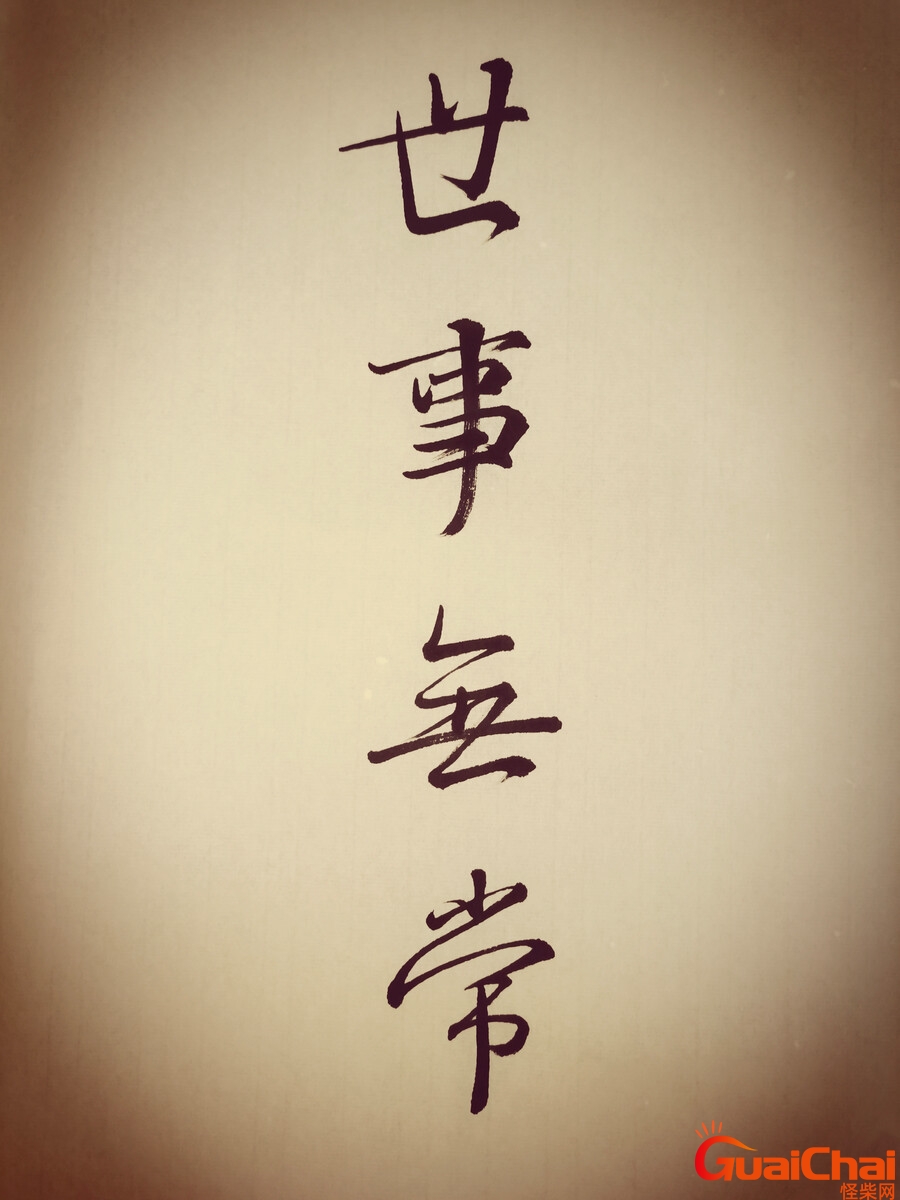 世事無常
GuaiChai
怪柴网